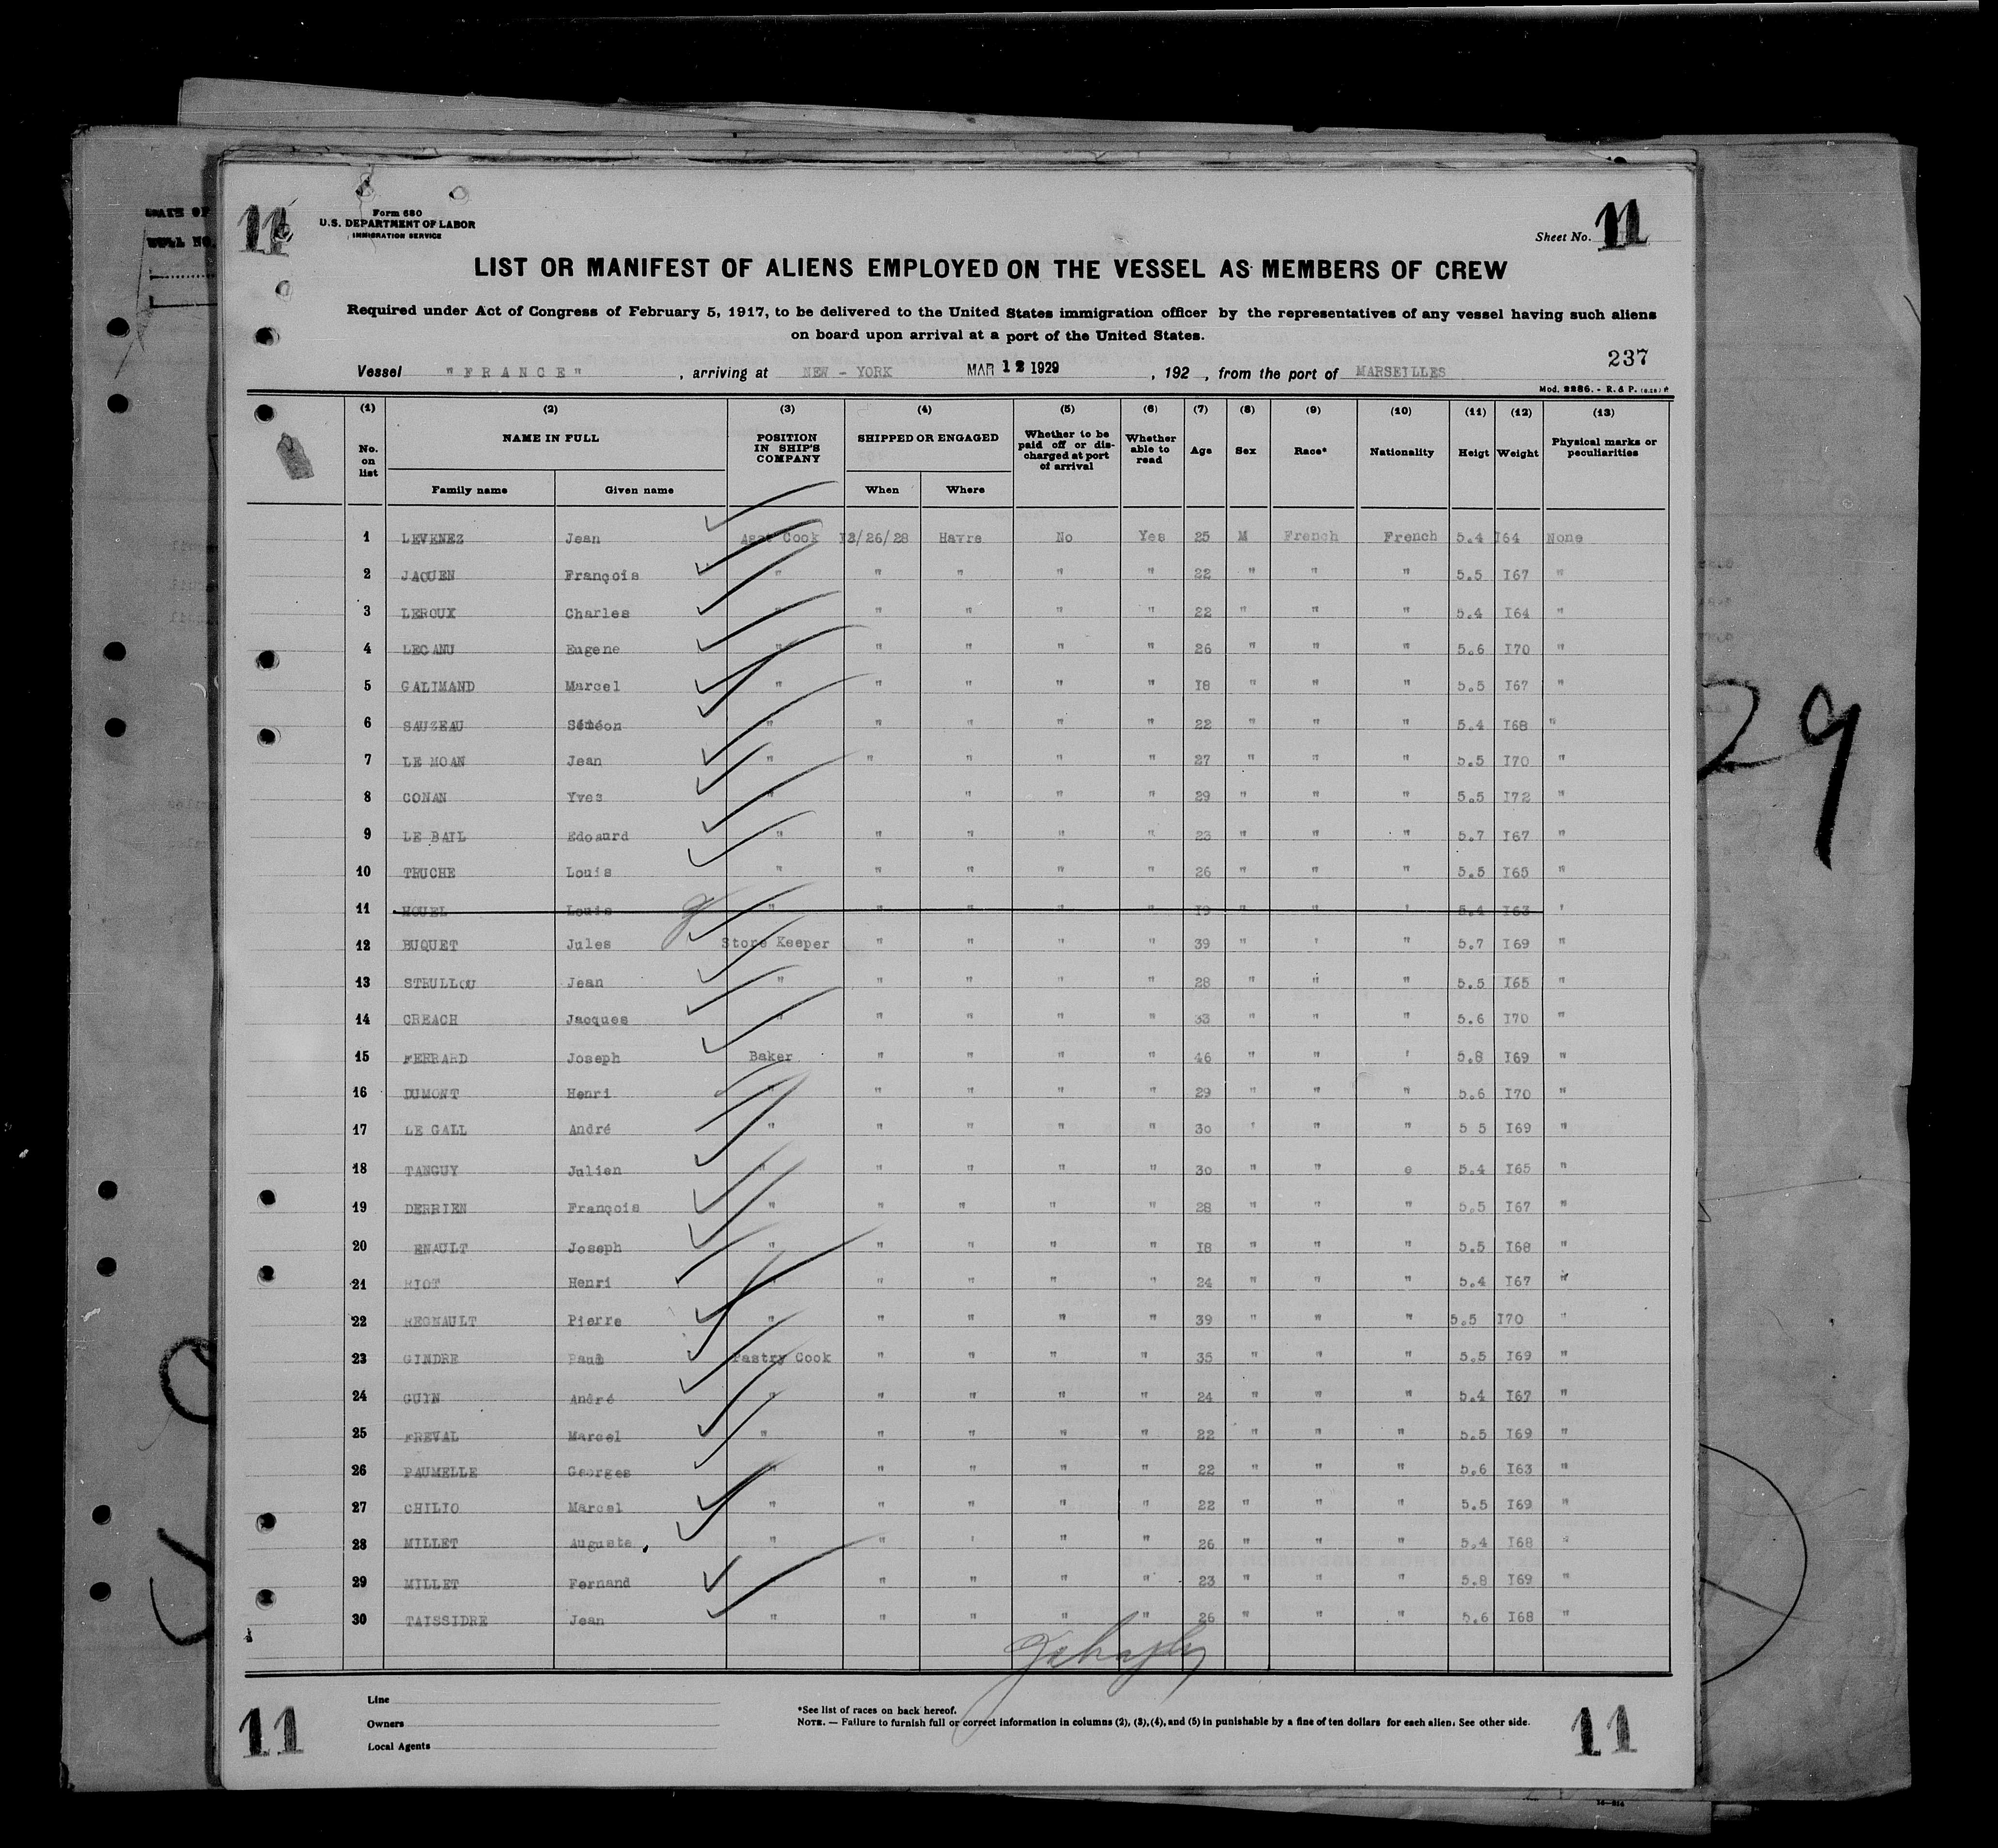 11
Form 680
U.S. DEPARTMENT OF LABOR
IMMIGRATION SERVICE
Sheet No. 11
LIST OR MANIFEST OF ALIENS EMPLOYED ON THE VESSEL AS MEMBERS OF CREW
Required under Act of Congress of February 5, 1917, to be delivered to the United States immigration officer by the representatives of any vessel having such aliens
on board upon arrival at a port of the United States.
237
Vessel "FRANCE", arriving at NEW-YORK MAR 12 1929, 192 , from the port of MARSEILLES
Mod. 2286. - R. & P.
(1) (2) (3) (4) (5) (6) (7) (8) (9) (10) (11) (12) (13)
No. on list NAME IN FULL Family name Given name POSITION IN SHIP'S COMPANY SHIPPED OR ENGAGED When Where Whether to be paid off or discharged at port of arrival Whether able to read Age Sex Race* Nationality Heigt Weight Physical marks or peculiarities
1 LEVENEZ Jean Asst Cook 12/26/28 Havre No Yes 25 M French French 5.4 I64 None
2 JAOUEN François " " " " " 22 " " " 5.5 I67 "
3 LEROUX Charles " " " " " 22 " " " 5.4 I64 "
4 LECANU Eugene " " " " " 26 " " " 5.6 I70 "
5 GALIMAND Marcel " " " " " I8 " " " 5.5 I67 "
6 SAUZEAU Siméon " " " " " 22 " " " 5.4 I68 "
7 LE MOAN Jean " " " " " 27 " " " 5.5 I70 "
8 CONAN Yves " " " " 29 " " " 5.5 I72 "
9 LE BAIL Edoaurd " " " " " 23 " " " 5.7 I67 "
10 TRUCHE Louis " " " " " 26 " " " 5.5 I65 "
11 HOUEL Louis " " " " " I9 " " ' 5.4 I63 '
12 BUQUET Jules Store Keeper " " " " 39 " ' " 5.7 I69 "
13 STRULLOU Jean " " " " " 28 " " " 5.5 I65 "
14 CREACH Jacques " " " " " 33 " " " 5.6 I70 "
15 FERRARD Joseph Baker " " " " 46 " " ' 5.8 I69 "
16 DUMONT Henri " " " " " 29 " " " 5.6 I70 "
17 LE GALL André " " " " " 30 ' " " 5 5 I69 "
18 TANGUY Julien " " " " " 30 " " e 5.4 I65 "
19 DERRIEN François " " " " " 28 " " " 5.5 I67 "
20 ENAULT Joseph " " " " " I8 " " " 5.5 I68 "
21 RIOT Henri " " " " " 24 " " " 5.4 I67 "
22 REGNAULT Pierre " " " " " 39 " " " 5.5 I70 "
23 GINDRE Paul Pastry Cook " " " " 35 " " " 5.5 I69 "
24 GUIN André " " " " " 24 " " " 5.4 I67 "
25 FREVAL Marcel " " " " " 22 " " " 5.5 I69 "
26 PAUMELLE Georges " " " " " 22 " " " 5.6 I63 "
27 CHILIO Marcel " " " " " 22 " " " 5.5 I69 "
28 MILLET Auguste " " ' " " 26 " " " 5.4 I68 "
29 MILLET Fernand " " " " 23 " " " 5.8 I69 "
30 TAISSIDRE Jean " " " " " 26 " " " 5.6 I68 "
Line
Owners
Local Agents
*See list of races on back hereof.
NOTE. — Failure to furnish full or correct information in columns (2), (3), (4), and (5) in punishable by a fine of ten dollars for each alien. See other side.
11
11
29